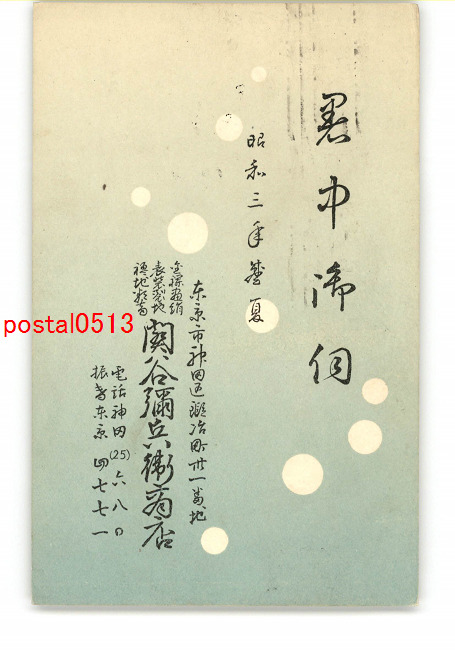 暑中御伺
昭和三年盛夏
東京市神田区鍛冶町卅一番地
表装裂地
関谷彌兵衛商店
電話神田(25)六八〇
振替東京四七七一
postal0513